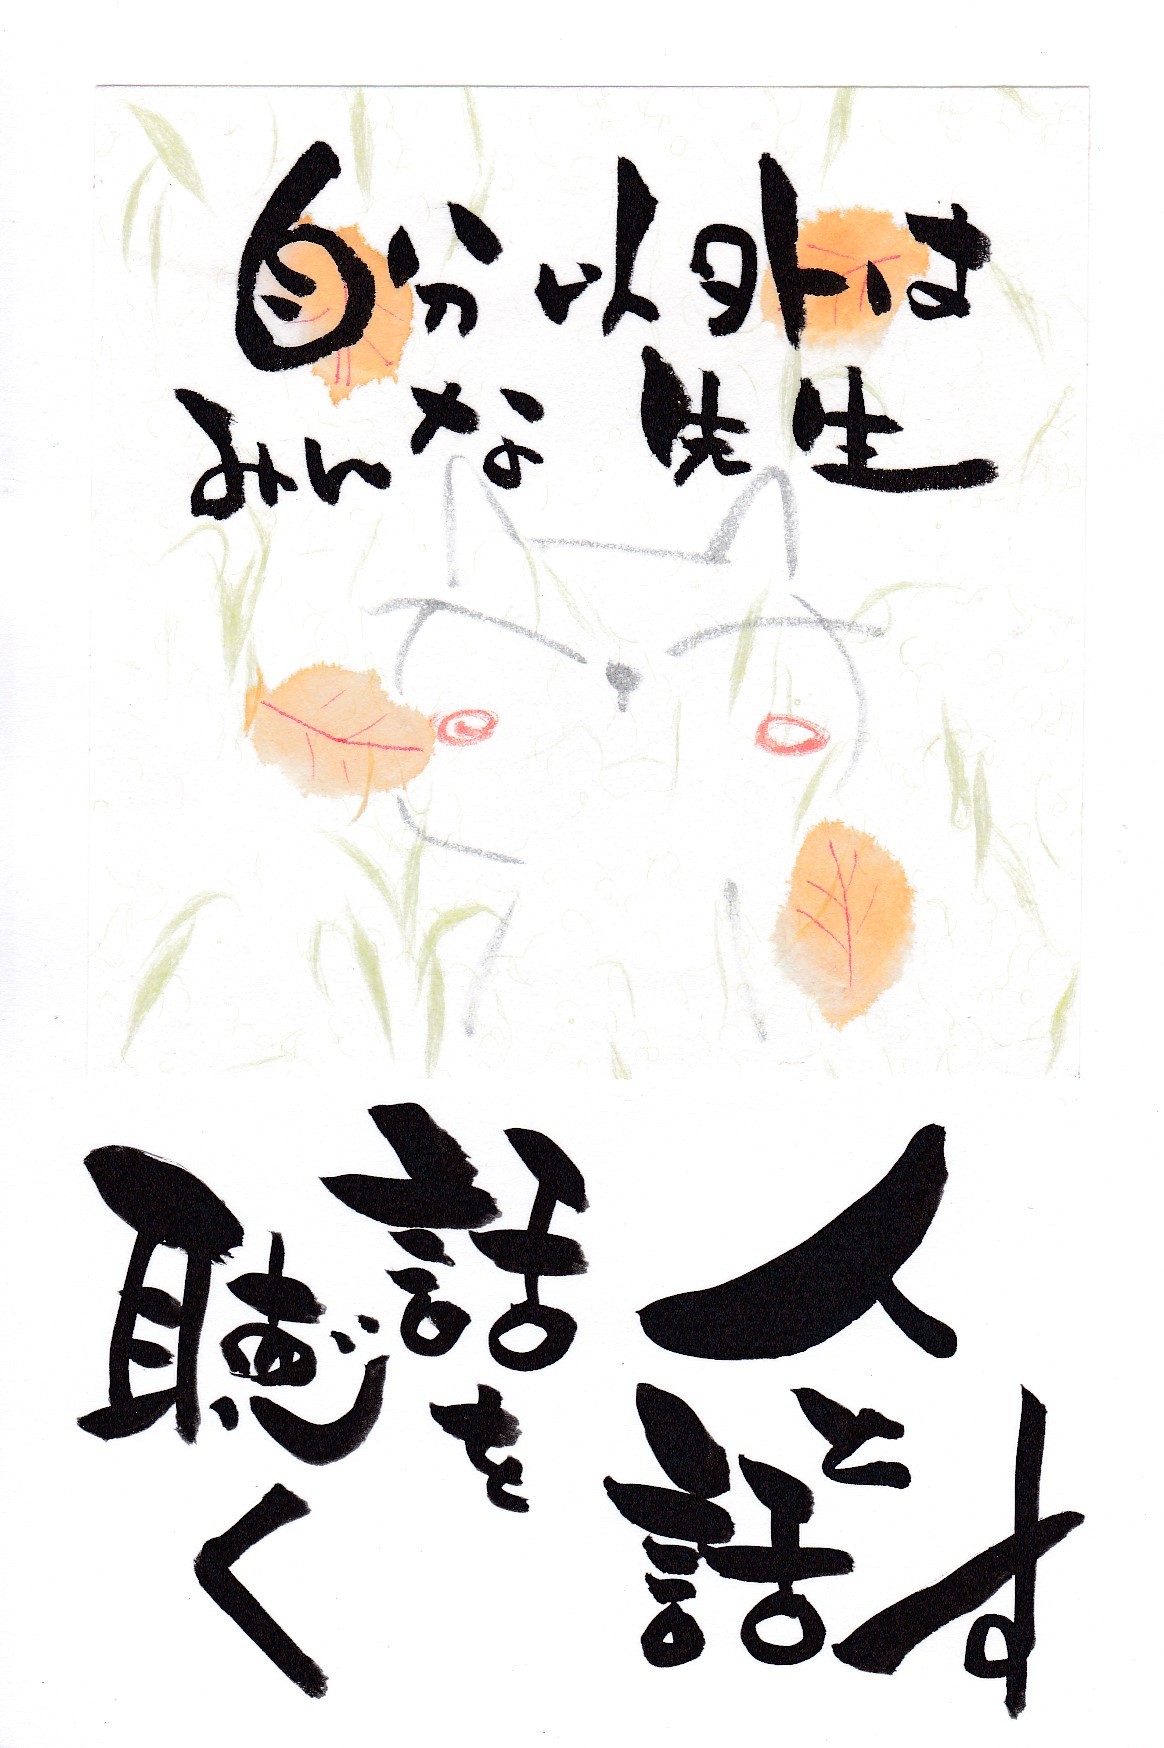 自分以外は
みんな先生
人と話す
話を聴く